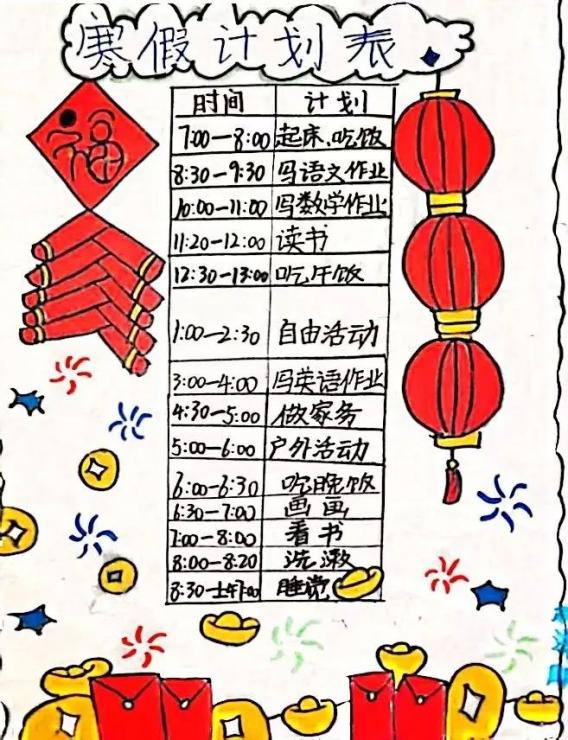 寒假计划表
福
时间 计划
7:00—8:00 起床、吃饭
8:30—9:30 写语文作业
10:00—11:00 写数学作业
11:20—12:00 读书
12:30—13:00 吃午饭
1:00—2:30 自由活动
3:00—4:00 写英语作业
4:30—5:00 做家务
5:00—6:00 户外活动
6:00—6:30 吃晚饭
6:30—7:00 画画
7:00—8:00 看书
8:00—8:20 洗漱
8:30— 睡觉